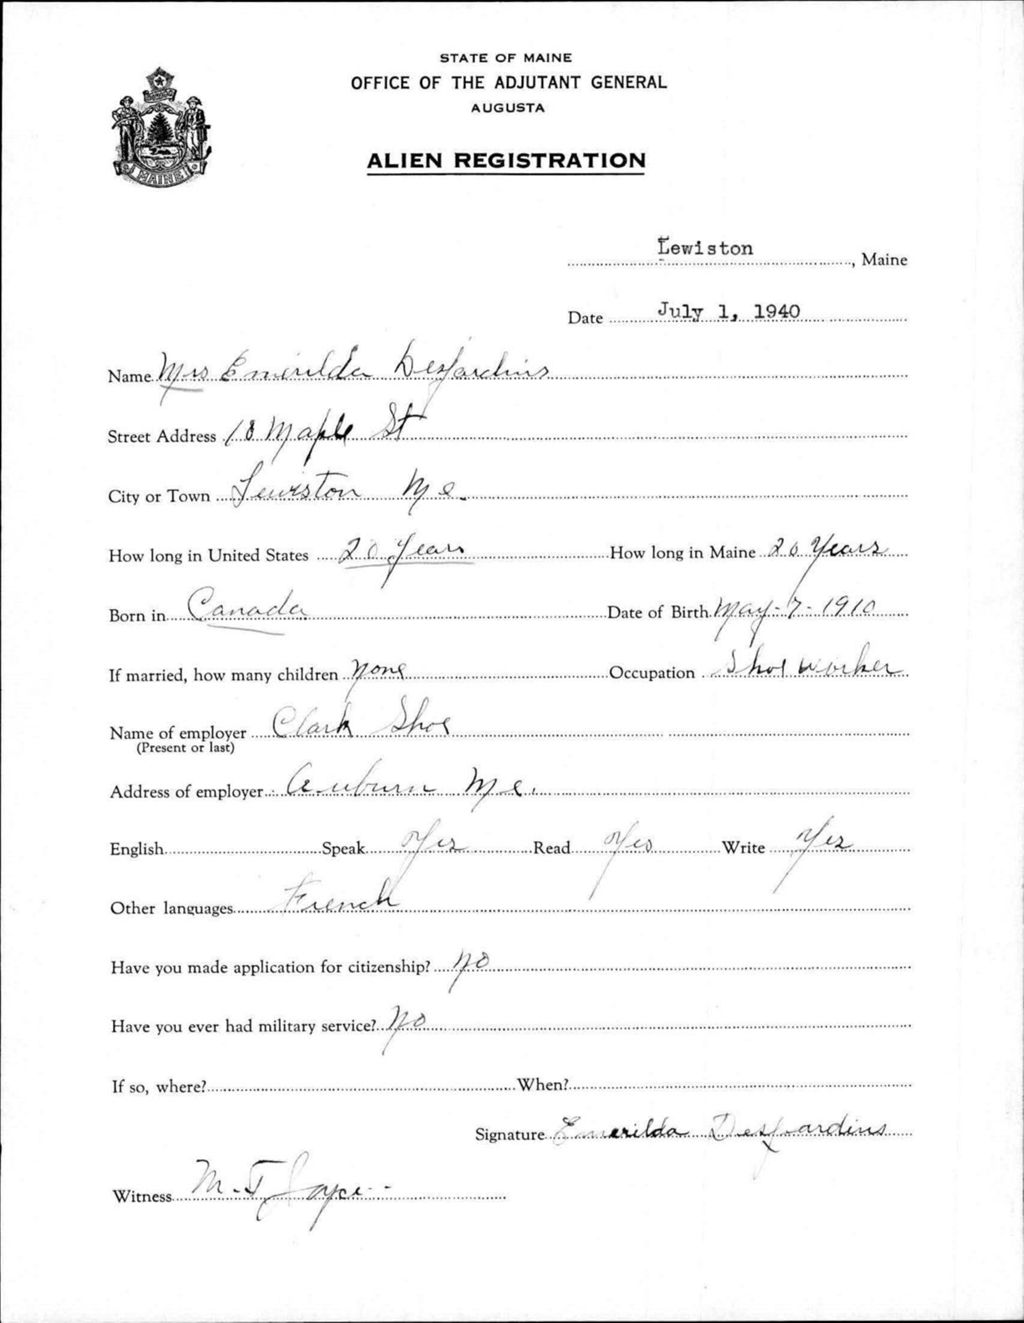 STATE OF MAINE
OFFICE OF THE ADJUTANT GENERAL
AUGUSTA
ALIEN REGISTRATION
MAINE
Lewiston, Maine
Date July 1, 1940
Name Mrs Emerilda Desjardins
Street Address 18 Maple St
City or Town Lewiston Me.
How long in United States 20 Years How long in Maine 20 Years
Born in Canada Date of Birth May-7-1910
If married, how many children None Occupation Shoe worker
Name of employer Clark Shoe
(Present or last)
Address of employer Auburn Me.
English Speak Yes Read Yes Write Yes
Other languages French
Have you made application for citizenship? No
Have you ever had military service? No
If so, where? When?
Signature Emerilda Desjardins
Witness M. T. Joyce